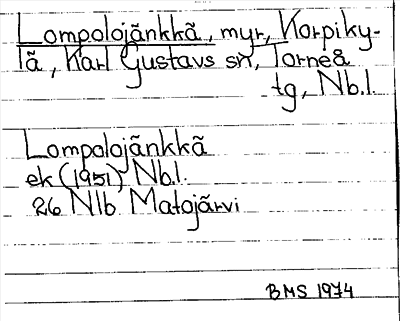 Lompolojänkkä, myr, Korpiky-
lä, Karl Gustavs sn, Torneå
tg, Nb.l.
Lompolojänkkä
ek (1951) Nb.l.
26 Nlb Matojärvi
BMS 1974